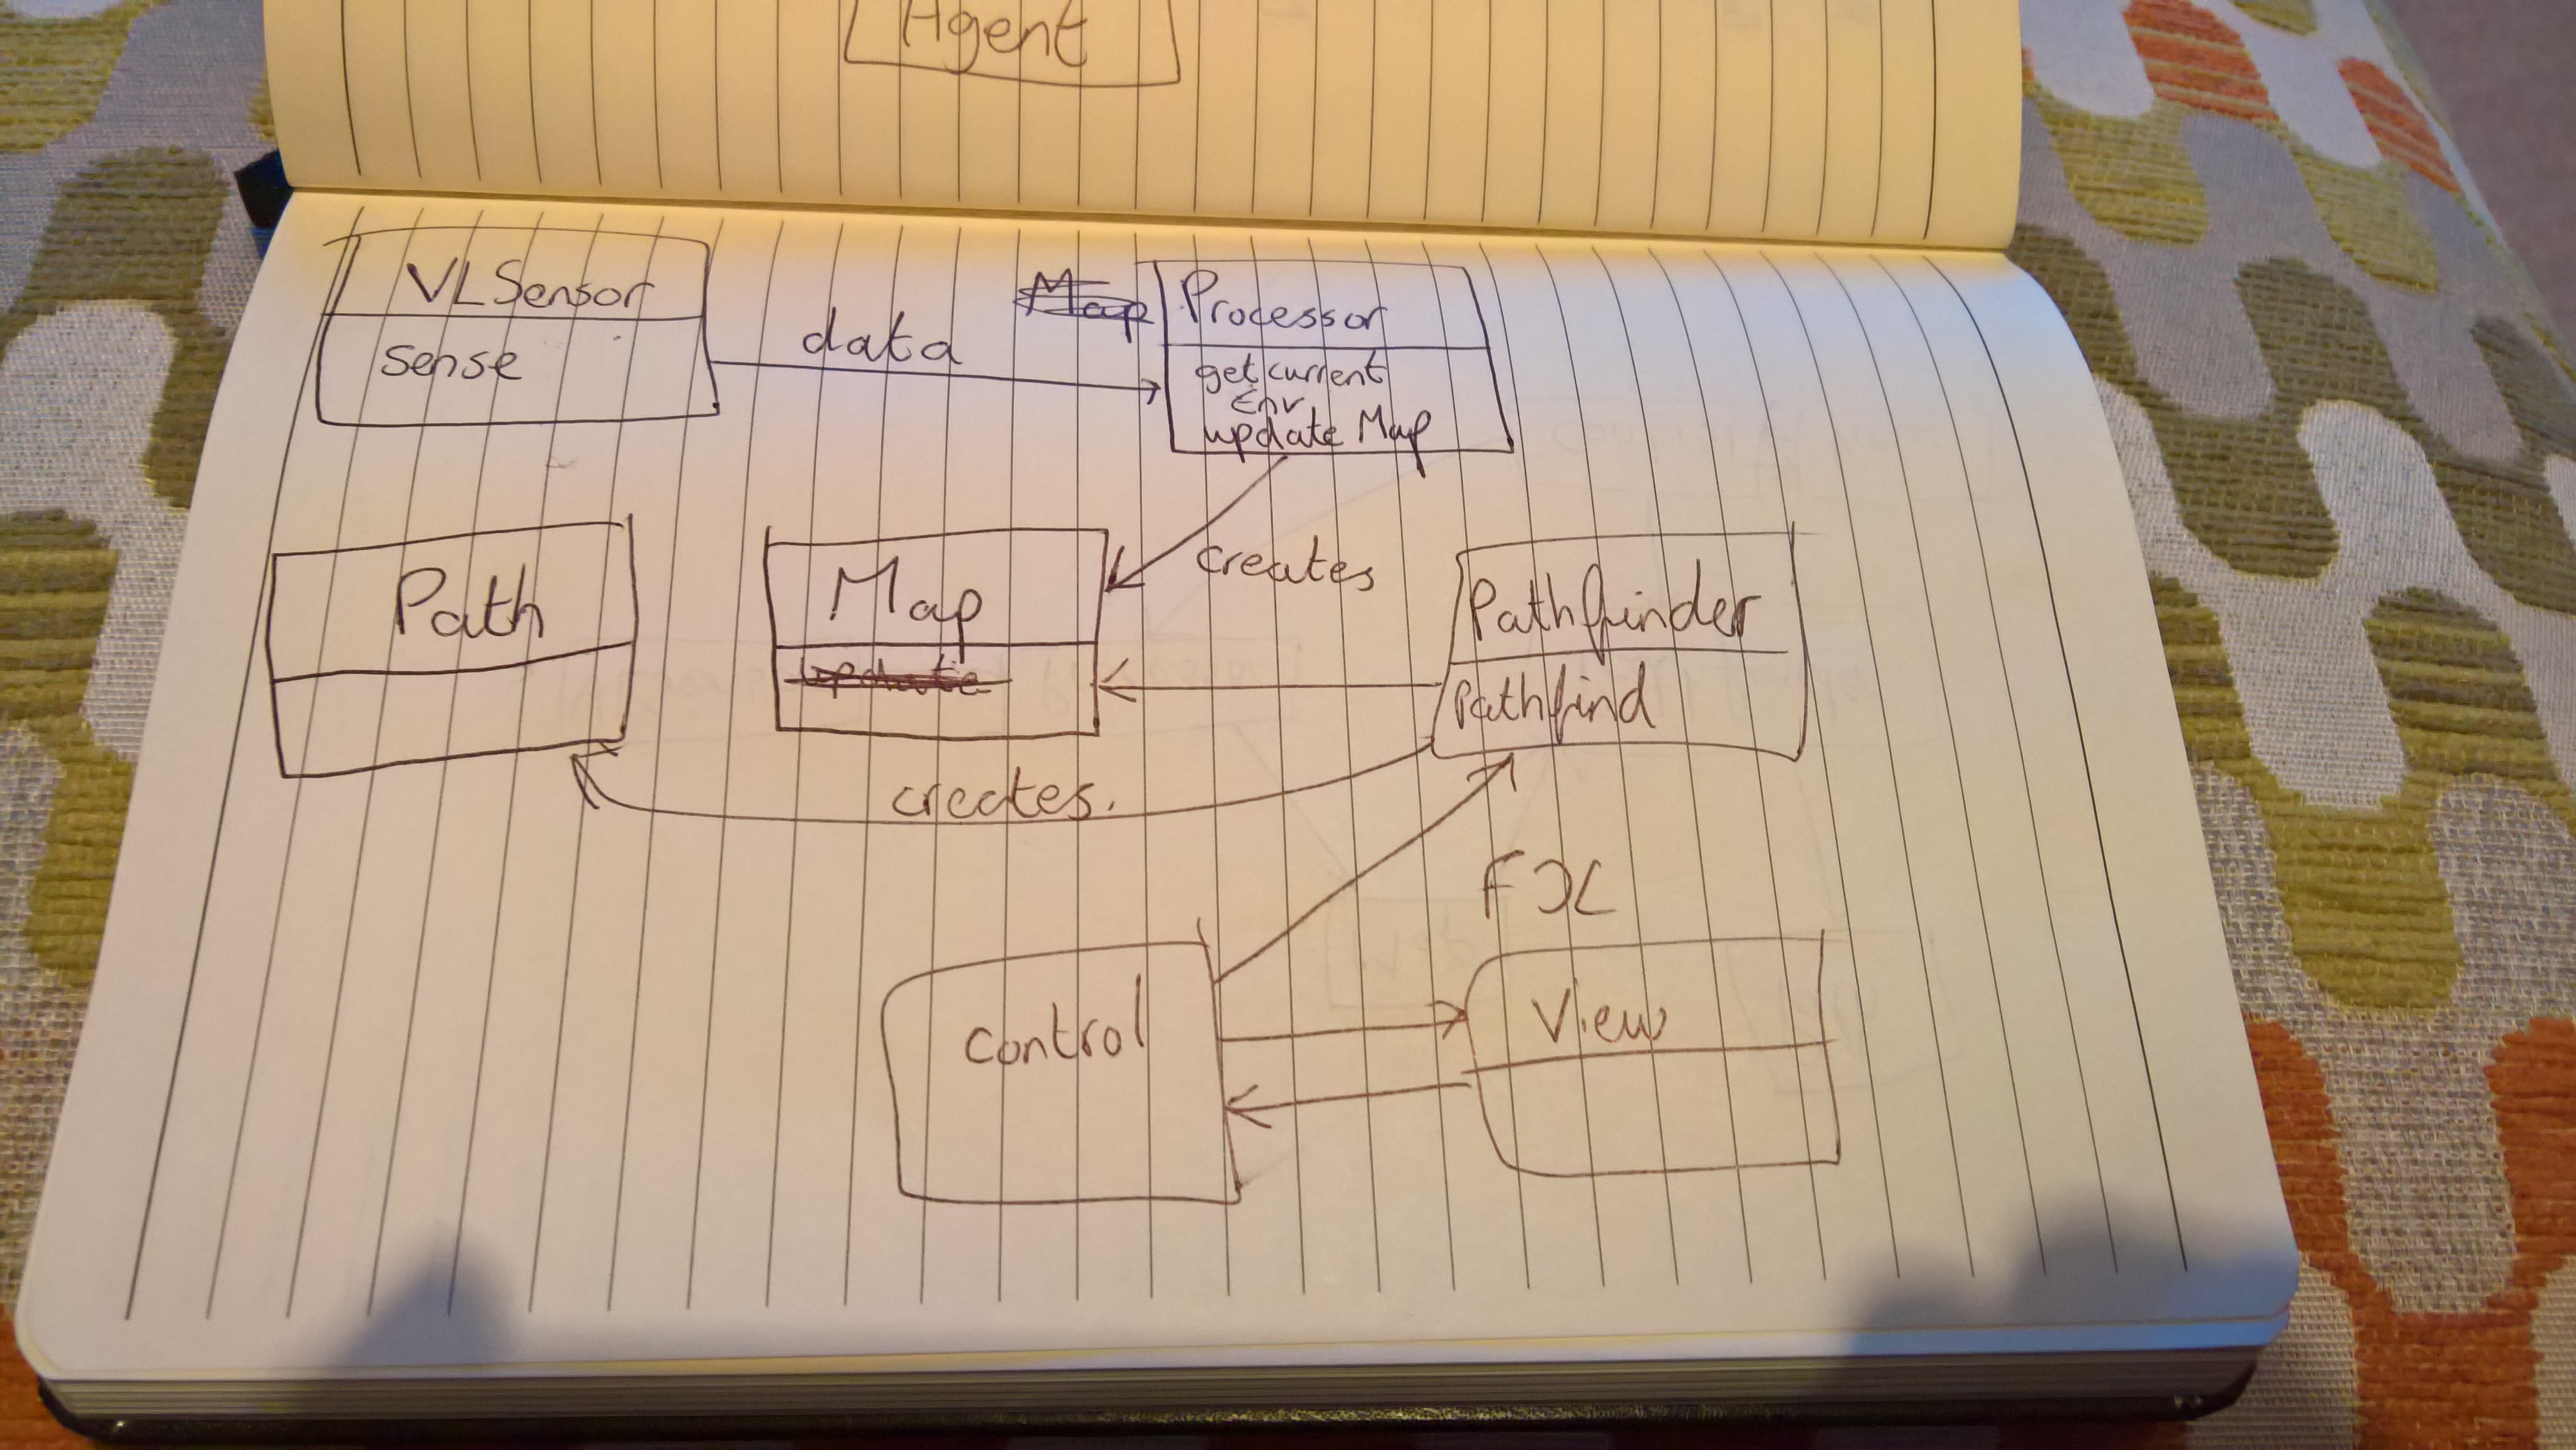 Agent
VLSensor
sense
data
Map Processor
get current
Env
update Map
creates
Path
Map
update
Pathfinder
Pathfind
creates.
control
View